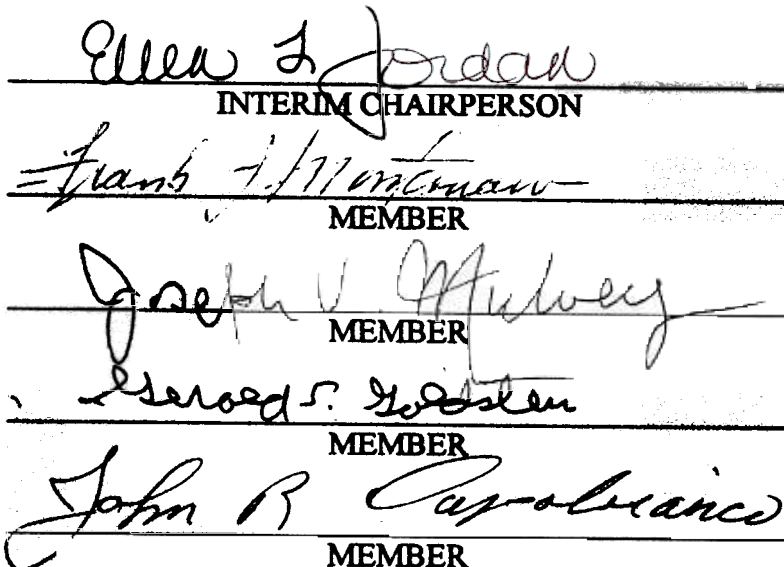 Ellen L Jordan
INTERIM CHAIRPERSON
Frank J. Montanaro
MEMBER
Joseph V. Mulvey
MEMBER
Gerald S. Goldstein
MEMBER
John R Capobianco
MEMBER